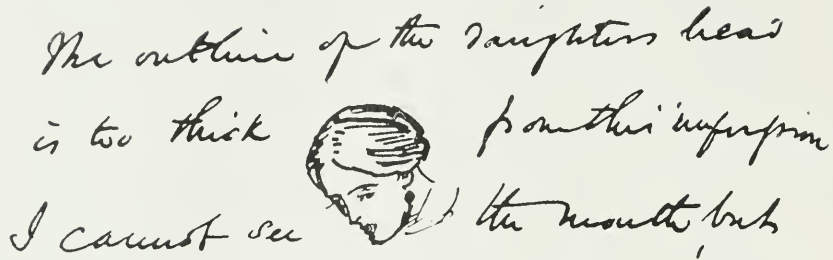 The outline of the daughters head
is too thick from this impression
I cannot see the mouth, but